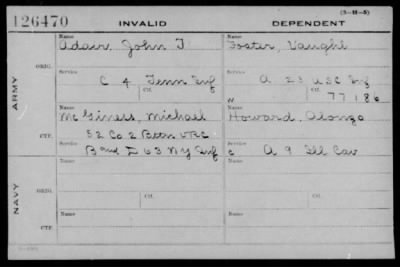 (3-11-5)
126470 INVALID DEPENDENT
Name Name
Adair, John T Foster, Vaughl
ORIG.
Service Service
C 4 Tenn Inf A 23 USC Inf
Ctf. Ctf.
W 77186
ARMY
Name Name
McGiness, Michael Howard, Alonzo
CTF.
52 Co 2 Battn VRC
Service
B and I 63 NY Inf C A 9 Ill Cav
Name Ctf. Name Ctf.
ORIG.
Service Service
NAVY
Name Name
CTF.